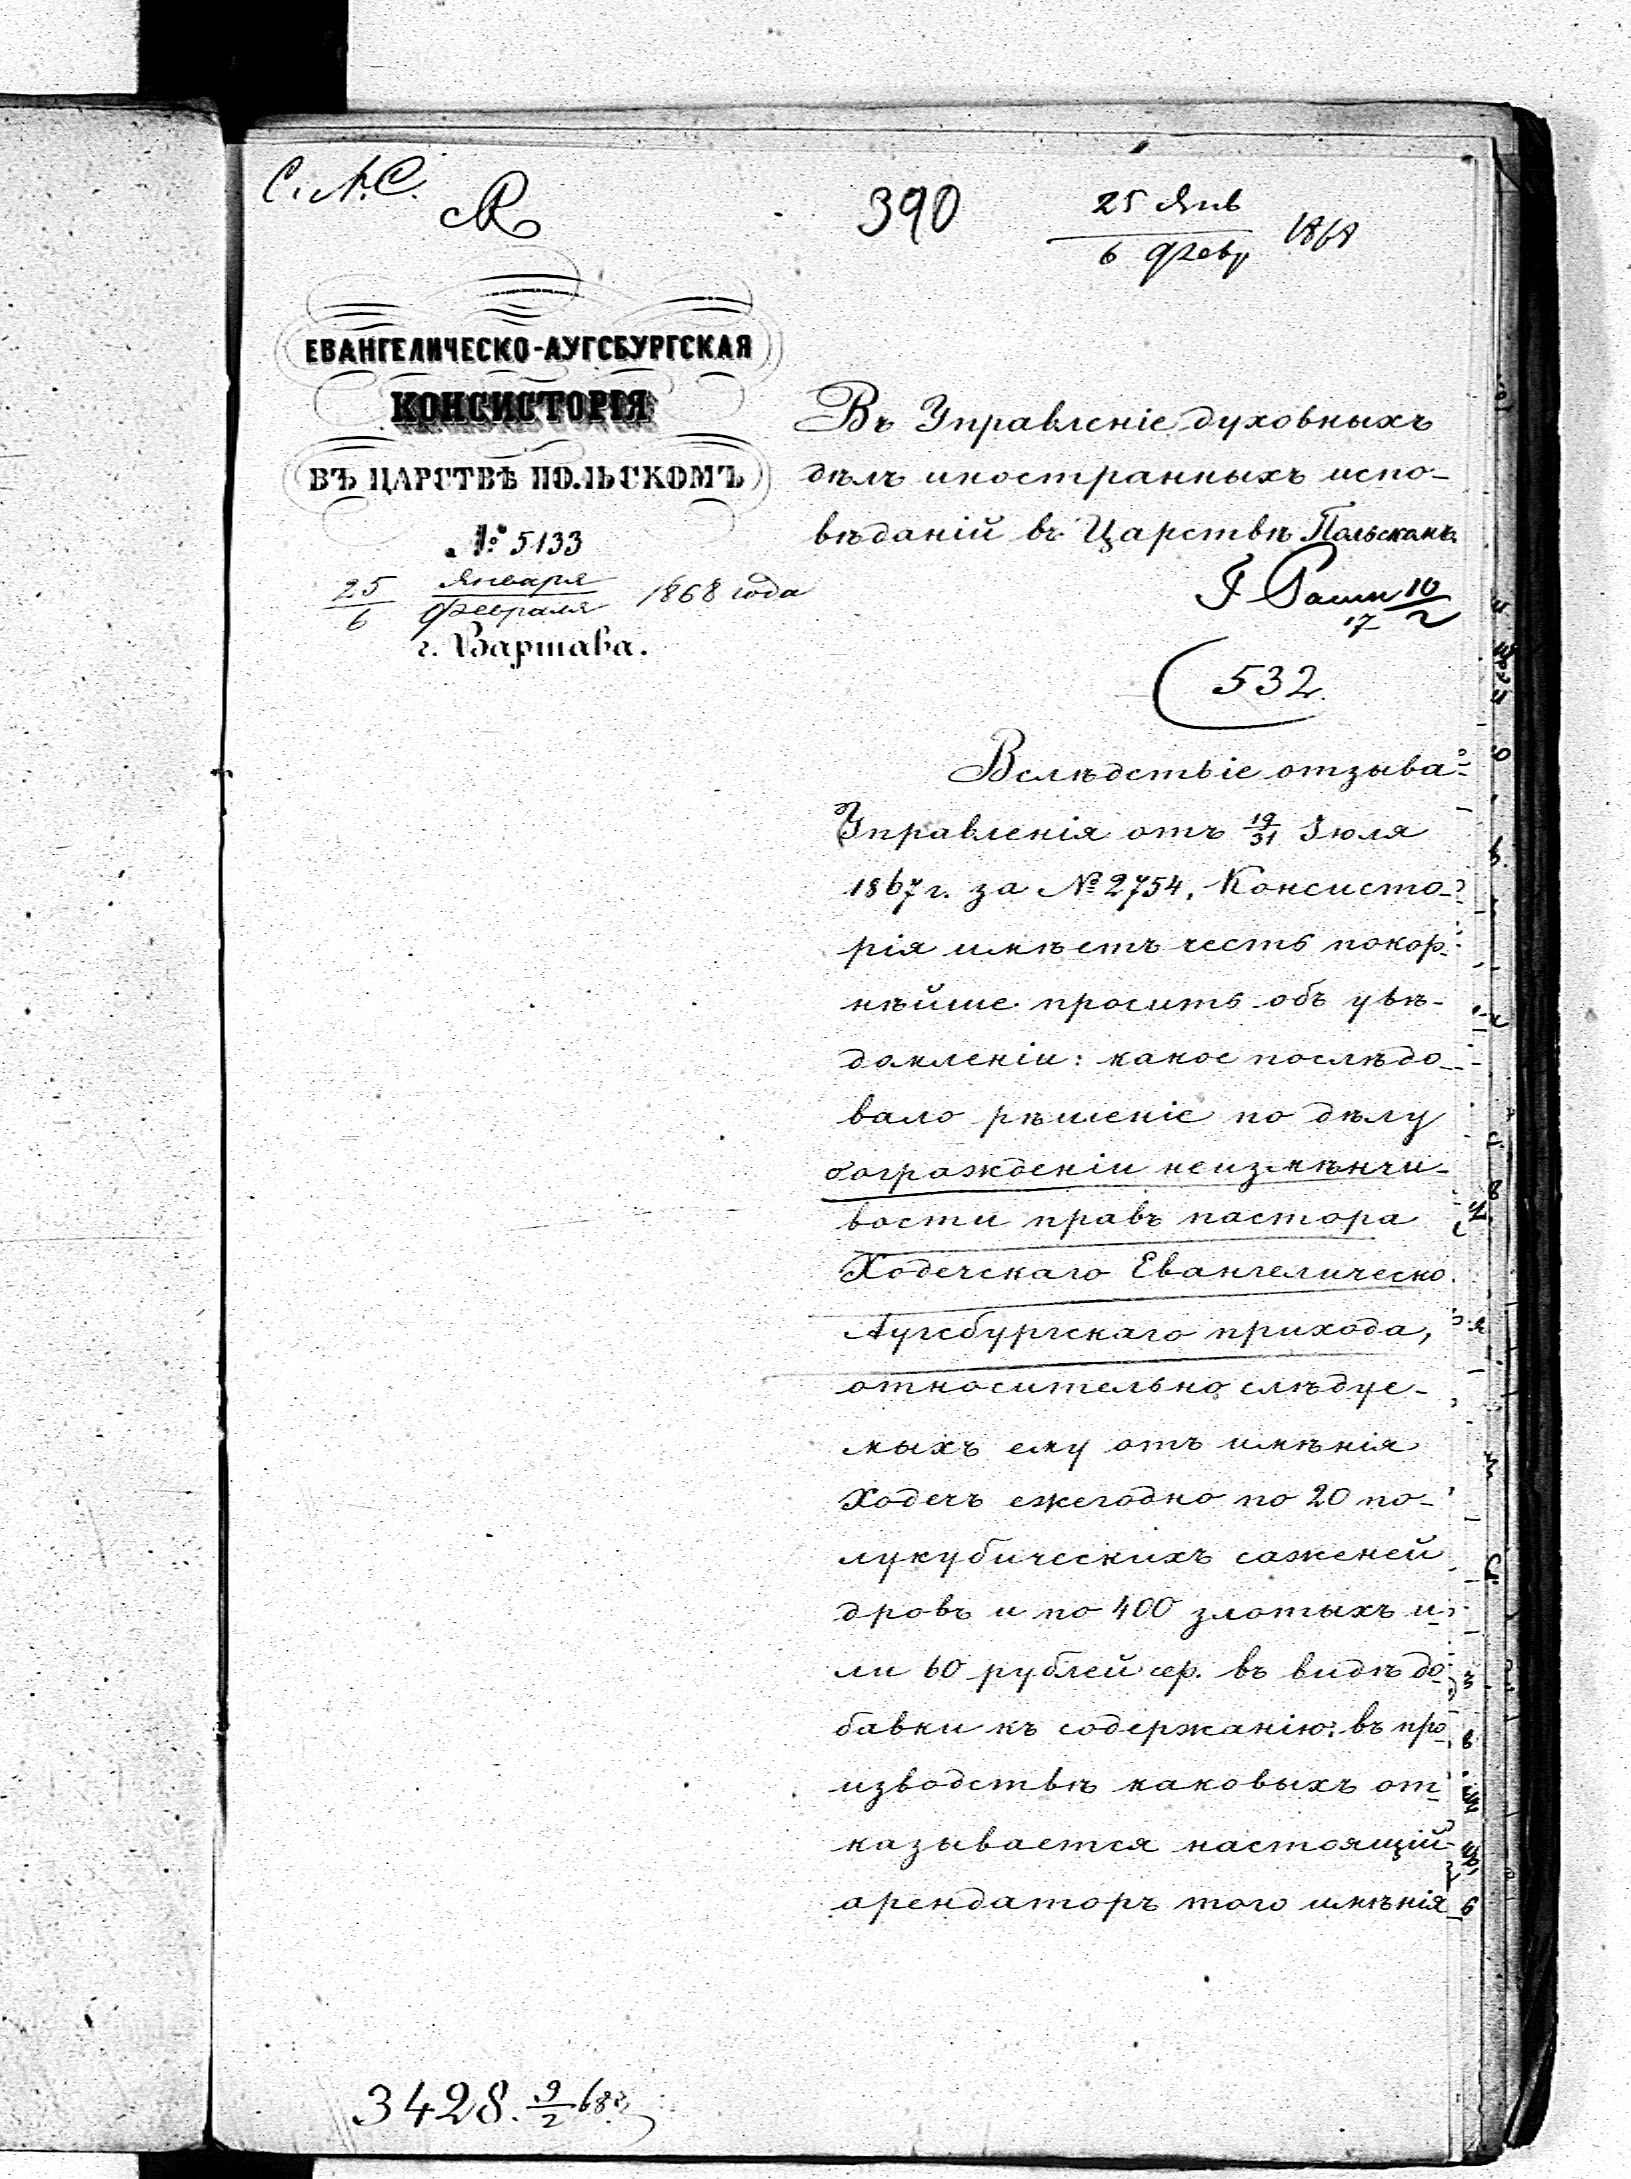 С. А. С.
390
25 Янв
6 Февр 1868
ЕВАНГЕЛИЧЕСКО-АУГСБУРГСКАЯ
КОНСИСТОРІЯ
ВЪ ЦАРСТВѢ ПОЛЬСКОМЪ
№ 5133
25/6 Января/Февраля 1868 года
г. Варшава.
Въ Управленіе духовныхъ
дѣлъ иностранныхъ испо-
вѣданій въ Царствѣ Польскомъ.
10/2
17
532
Вслѣдствіе отзыва
Управленія отъ 19/31 Іюля
1867 г. за № 2754, Консисто-
рія имѣетъ честь покор-
нѣйше просить объ увѣ-
домленіи: какое послѣдо-
вало рѣшеніе по дѣлу
о огражденіи неизмѣнчи-
вости правъ пастора
Ходечскаго Евангелическо
Аугсбургскаго прихода,
относительно слѣдуе-
мыхъ ему отъ имѣнія
Ходечъ ежегодно по 20 по-
лукубическихъ саженей
дровъ и по 400 злотыхъ и-
ли 60 рублей сер. въ видѣ до-
бавки къ содержанію; въ про
изводствѣ каковыхъ от-
казывается настоящій
арендаторъ того имѣнія
3428. 9/2 68 г.